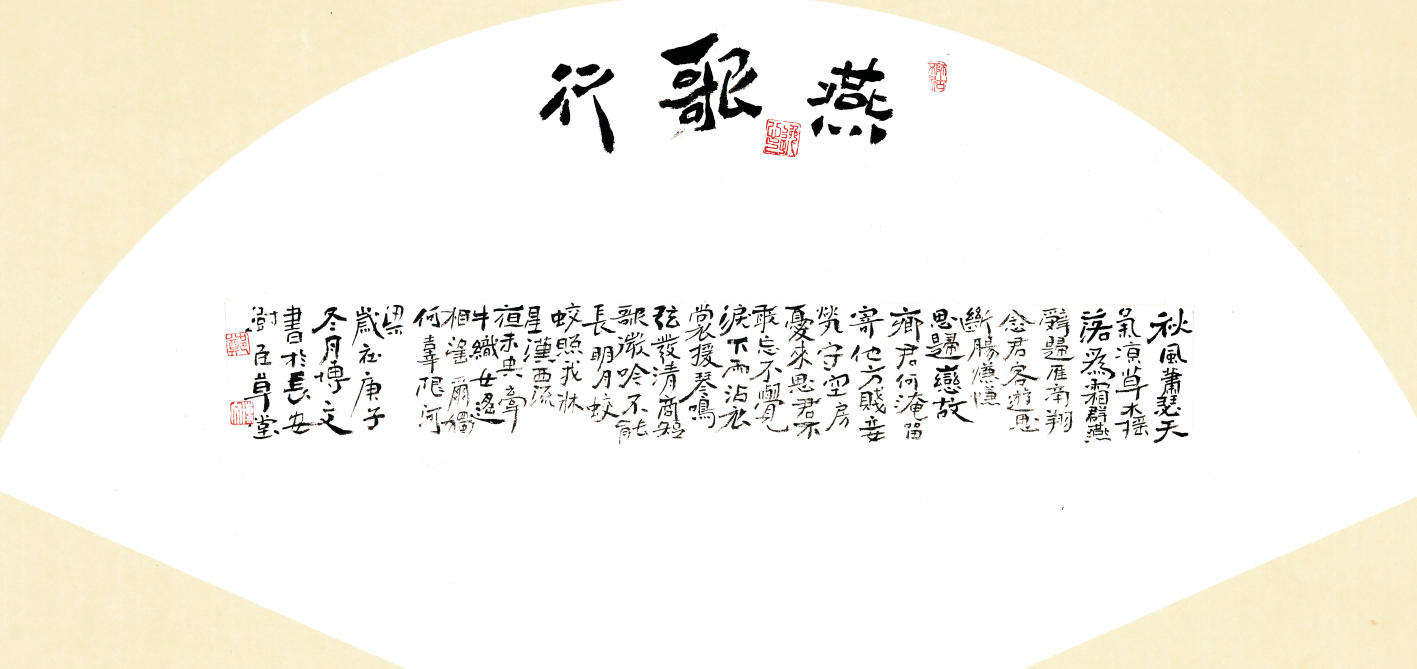 燕歌行
秋風蕭瑟天
氣凉草木摇
落為霜群燕
辭歸雁南翔
念君客遊思
斷腸慊慊
思歸戀故
鄉君何淹留
寄他方賤妾
煢守空房
憂來思君不
敢忘不覺
淚下雨沾衣
裳援琴鳴
弦發清商短
歌微吟不能
長明月皎
皎照我牀
星漢西流
夜未央牽
牛織女遥
相望爾獨
何辜限河
梁
歲在庚子
冬月博文
書於長安
草堂